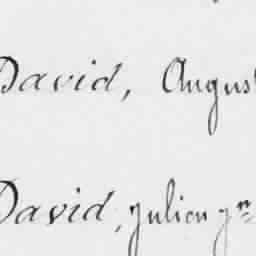 David, August
David, Julien jn